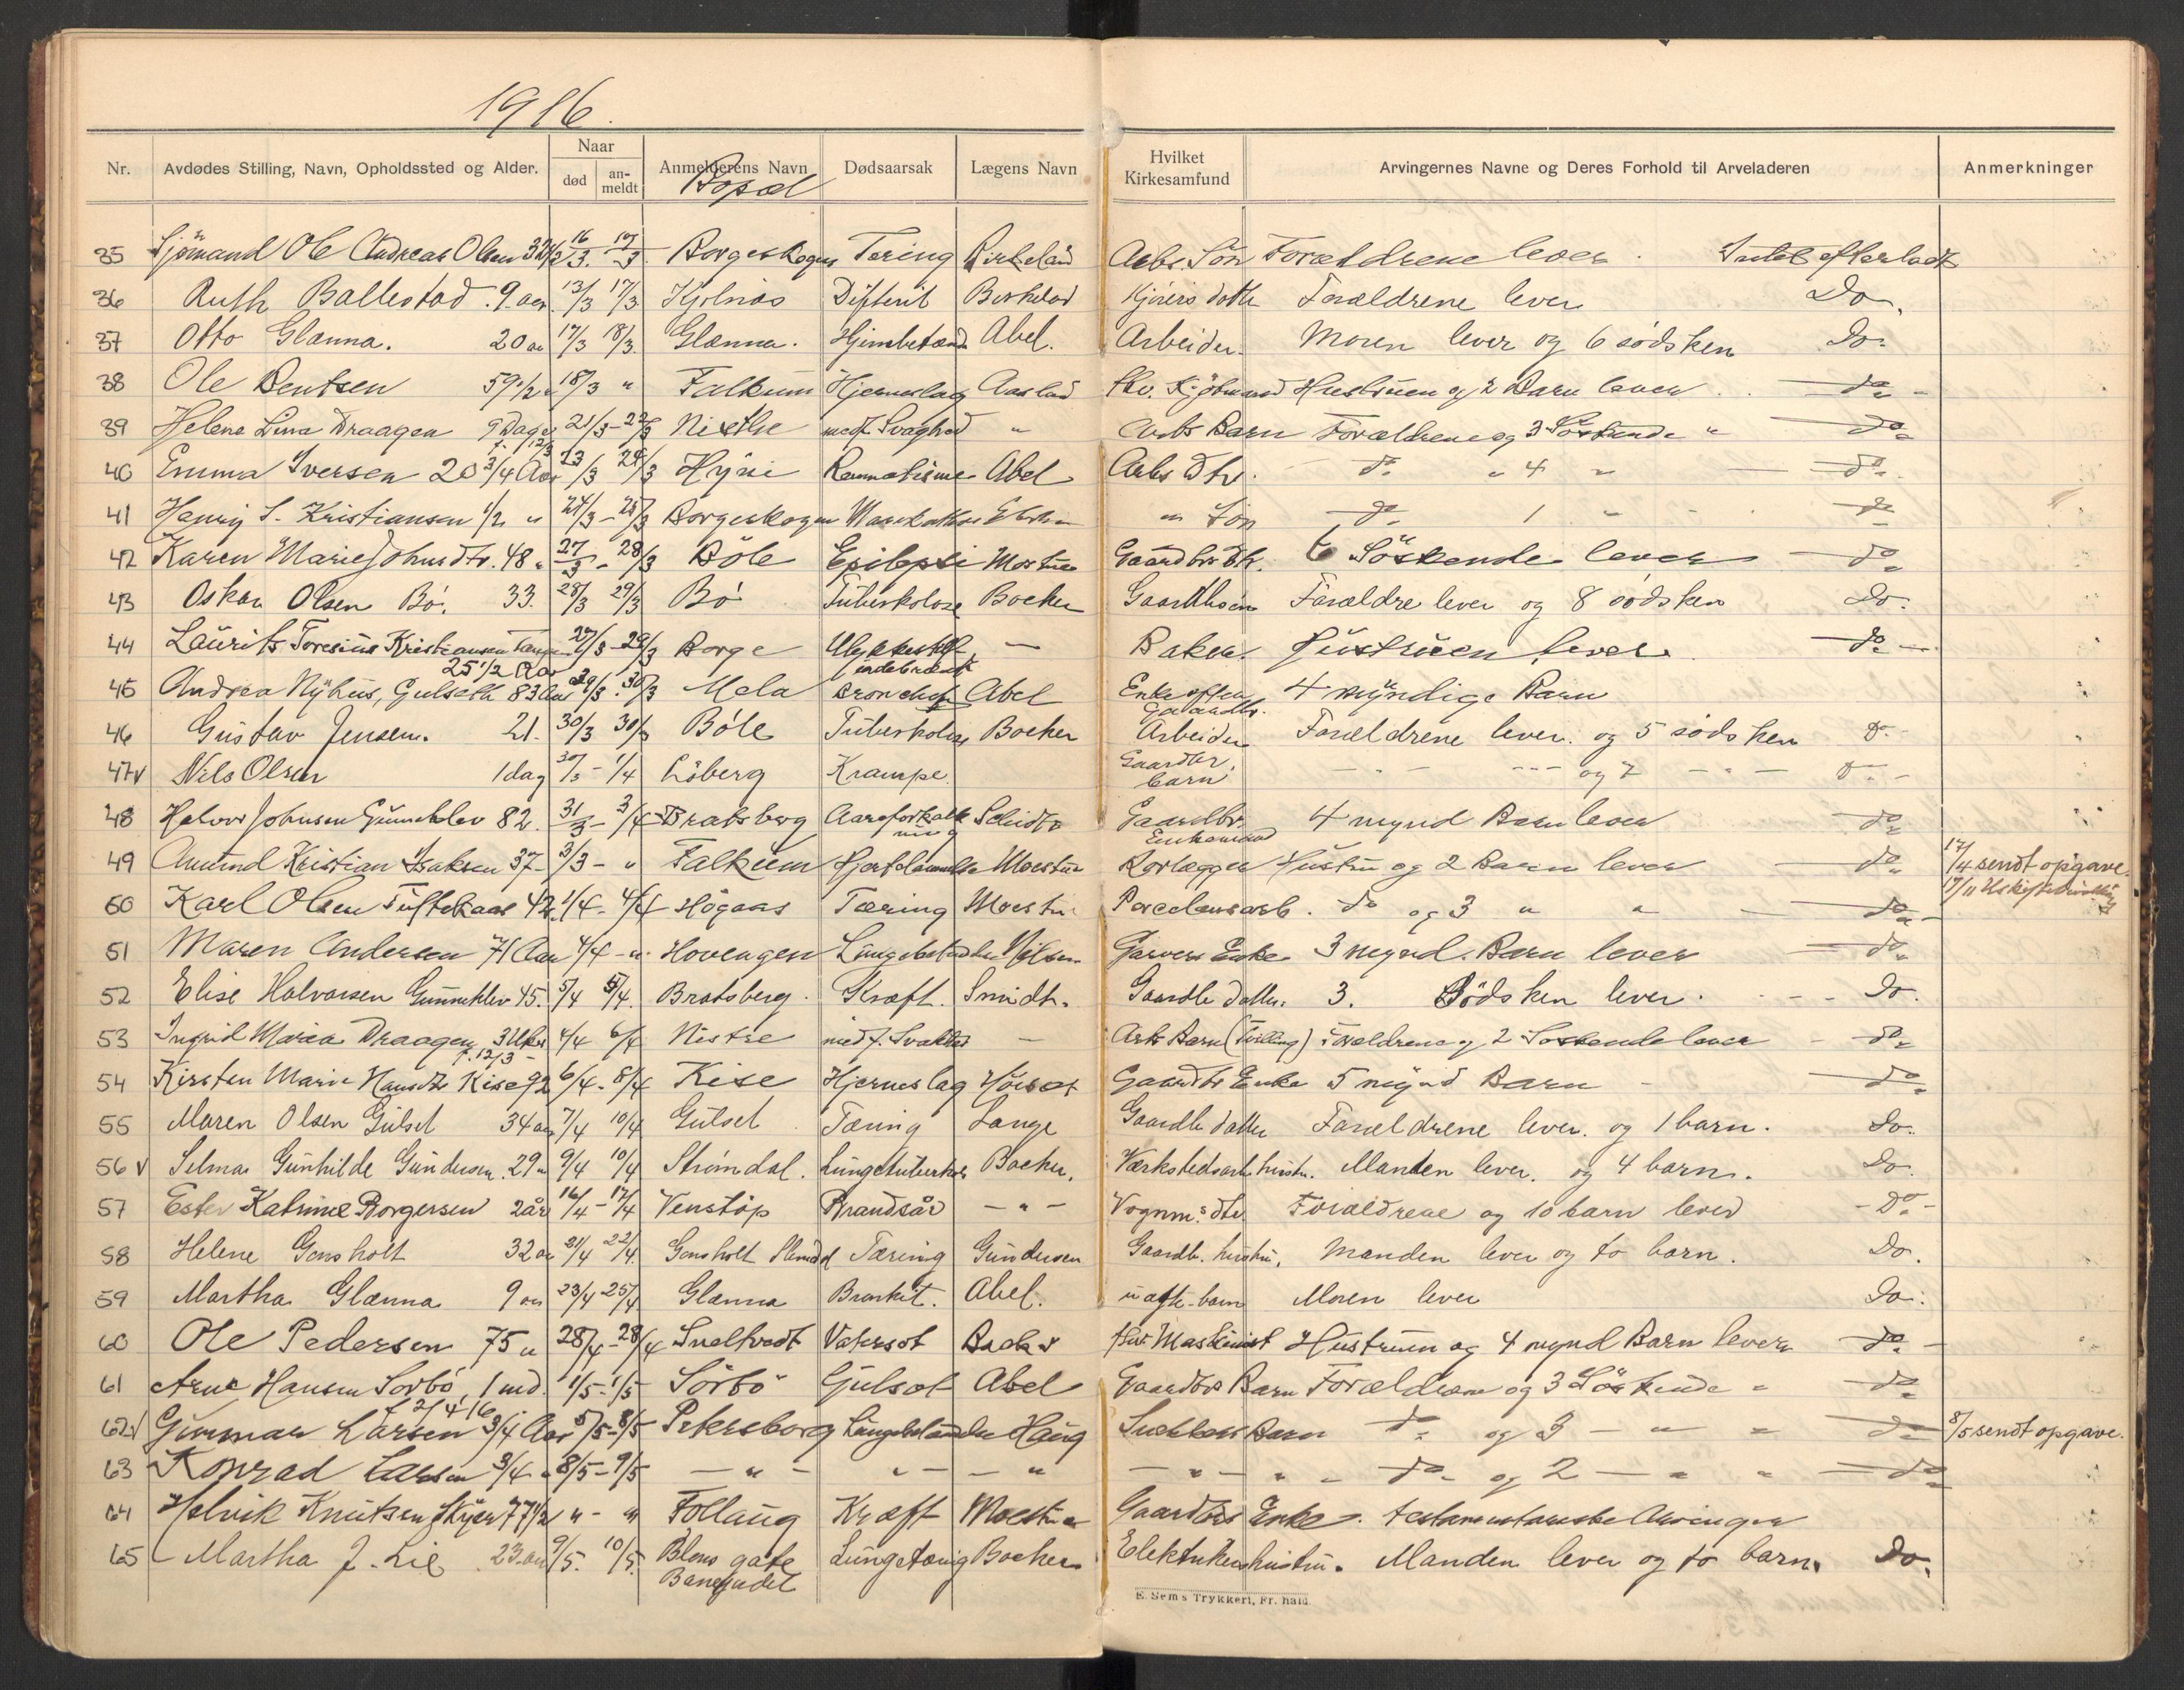 1916.
Nr. Avdødes Stilling, Navn, Opholdssted og Alder. Naar død an-meldt Anmelderens Navn Bopæl Dødsaarsak Lægens Navn Hvilket Kirkesamfund Arvingernes Navne og Deres Forhold til Arveladeren Anmerkninger
35 Sjömand Ole Andreas Olsen 16/3. 17/3 Borgeskogen Tæring Arbs. Søn Forældrene lever. Intet efterladt
36 Ruth Ballestad. 9 aar. 13/3 17/3 Kjølnæs Difterit Forældrene lever Do.
37 Otto Glænna. 20 aar 17/3 18/3. Glænna. Abel. Arbeider. Moren lever og 6 södsken Do.
38 Ole Bentsen 59 1/2 18/3 " Falkum Hjerneslag Aasland fhv. Kjöbmand Hustruen og 2 Barn lever do
39 Helene Lina Draagen 9 Dage f. 12/3 21/3 - 22/3 Nisthe medf. Svaghed " Arbs Barn Forældrene og 3 Söskende " do
40 Emma Iversen 20 3/4 Aar 23/3 24/3 Hyni Reumatisme Abel Arbs Dtr. do " 4 " do
41 Henry S. Kristiansen 1/2 " 24/3 - 25/3 Borgeskogen " Søn do 1 " do
42 Karen Marie Johnsdtr. 48 " 27/3 - 28/3 Böle Epilepsi Moestue Gaardbr Dtr. 6 Söskende lever do
43 Oskar Olsen Bö. 33. 28/3 29/3 Bö Tuberkolose Backer Forældre lever og 8 södsken Do.
44 Laurits Toresius Kristiansen 25 1/2 Aar 27/3 - 29/3 Borge Ulykkestilf. — Baker. Hustruen lever. do
45 Andrea Nyhus, Gulseth 83 Aar 29/3. 30/3 Mela Abel Enke efter Gaardbr. 4 myndige Barn
46 Gustav Jensen. 21. 30/3 30/3 Böle Tuberkolose Backer Arbeider Forældrene lever. og 5 södsken D.
47 v Nils Olsen 1 dag 30/3 - 1/4 Löberg Krampe. Gaardbr. barn - - --- og 7 - - - D. -
48 Halvor Johnsen Gunneklev 82. 31/3 - 3/4 Bratsberg Aareforkalkning Gaardbr. Enkemand 4 mynd Barn lever do
49 Amund Kristian Isaksen 37 - 3/3 - " Falkum Hjertelammelse Moestue Rorlægger Hustru og 2 Barn lever do 17/4 sendt opgave.
50 Karl Olsen Tuftekaas 42. 1/4 - 4/4 Högaas Tæring Moestue Porcelænsarb. do og 3 " " do 17/11
51 Maren Andersen 71 Aar 4/4 - " Hovengen Lungebetændelse Nilsen Garvers Enke 3 mynd. Barn lever do
52 Elise Halvorsen Gunneklev 45. 5/4 5/4. Bratsberg. Kræft. Smidt. Gaardb datter. 3. Södsken lever. Do.
53 Ingrid Maria Draagen 3 Uker f. 12/3 4/4 6/4 Nistre — Arbs Barn (Tvilling) Forældrene og 2 Söskende lever do
54 Kirsten Marie Hansdtr Kise 92 6/4 - 8/4 Kise Hjerneslag Gaardbr Enke 5 mynd Barn do
55 Maren Olsen Gulset 34 aar 7/4 10/4 Gulset Tæring Lange Gaardb datter Forældrene lever. og 1 barn. Do.
56 v Selma Gunhilde Gundersen. 29 " 9/4 10/4 Strömdal. Lungetuberkol Backer. Værkstedsarb hustru. Manden lever. og 4 barn. Do.
57 Ester Katrine Borgersen 2 år 16/4 - 17/4 Venstöp Brandsår - " - Vognm.s dtr. Forældrene og 10 barn lever - Do -
58 Helene Gonsholt 32 aar 21/4 22/4. Gonsholt Tæring Gundersen Gaardb. hustru. Manden lever og to barn. Do.
59 Martha Glænna 9 23/4 25/4 Glænna Bronkit. Abel. uægte barn Moren lever Do.
60 Ole Pedersen 75 " 28/4 - 28/4 Snaltvedt Vatersot Backer fhv Maskinist Hustruen og 4 mynd Barn lever do
61 Arne Hansen Sorbö, 1 md. f. 2/4 16 1/5 - 1/5 Sörbö Gulsot Abel Gaardbrs Barn Forældrene og 3 Söskende " do
62 v Gunnar Larsen 3/4 Aar 5/5 - 8/5 Petersborg Lungebetændelse Haug Barn do og 3 — " " do 8/5 sendt opgave.
63 Konrad Larsen 3/4 " 8/5 - 9/5 — " — " — " — " — " " do og 2 — " " do
64 Knutsen 77 1/2 " - " Follaug Kræft Moestue Gaardbrs Enke. testamentariske Arvinger
65 Martha J. Lie 23 aar 9/5. 10/5. Blens gate Lungetæring Backer Elektrikers hustru. Manden lever og to barn. Do.
E. Sem s Trykkeri, Fr. hald.